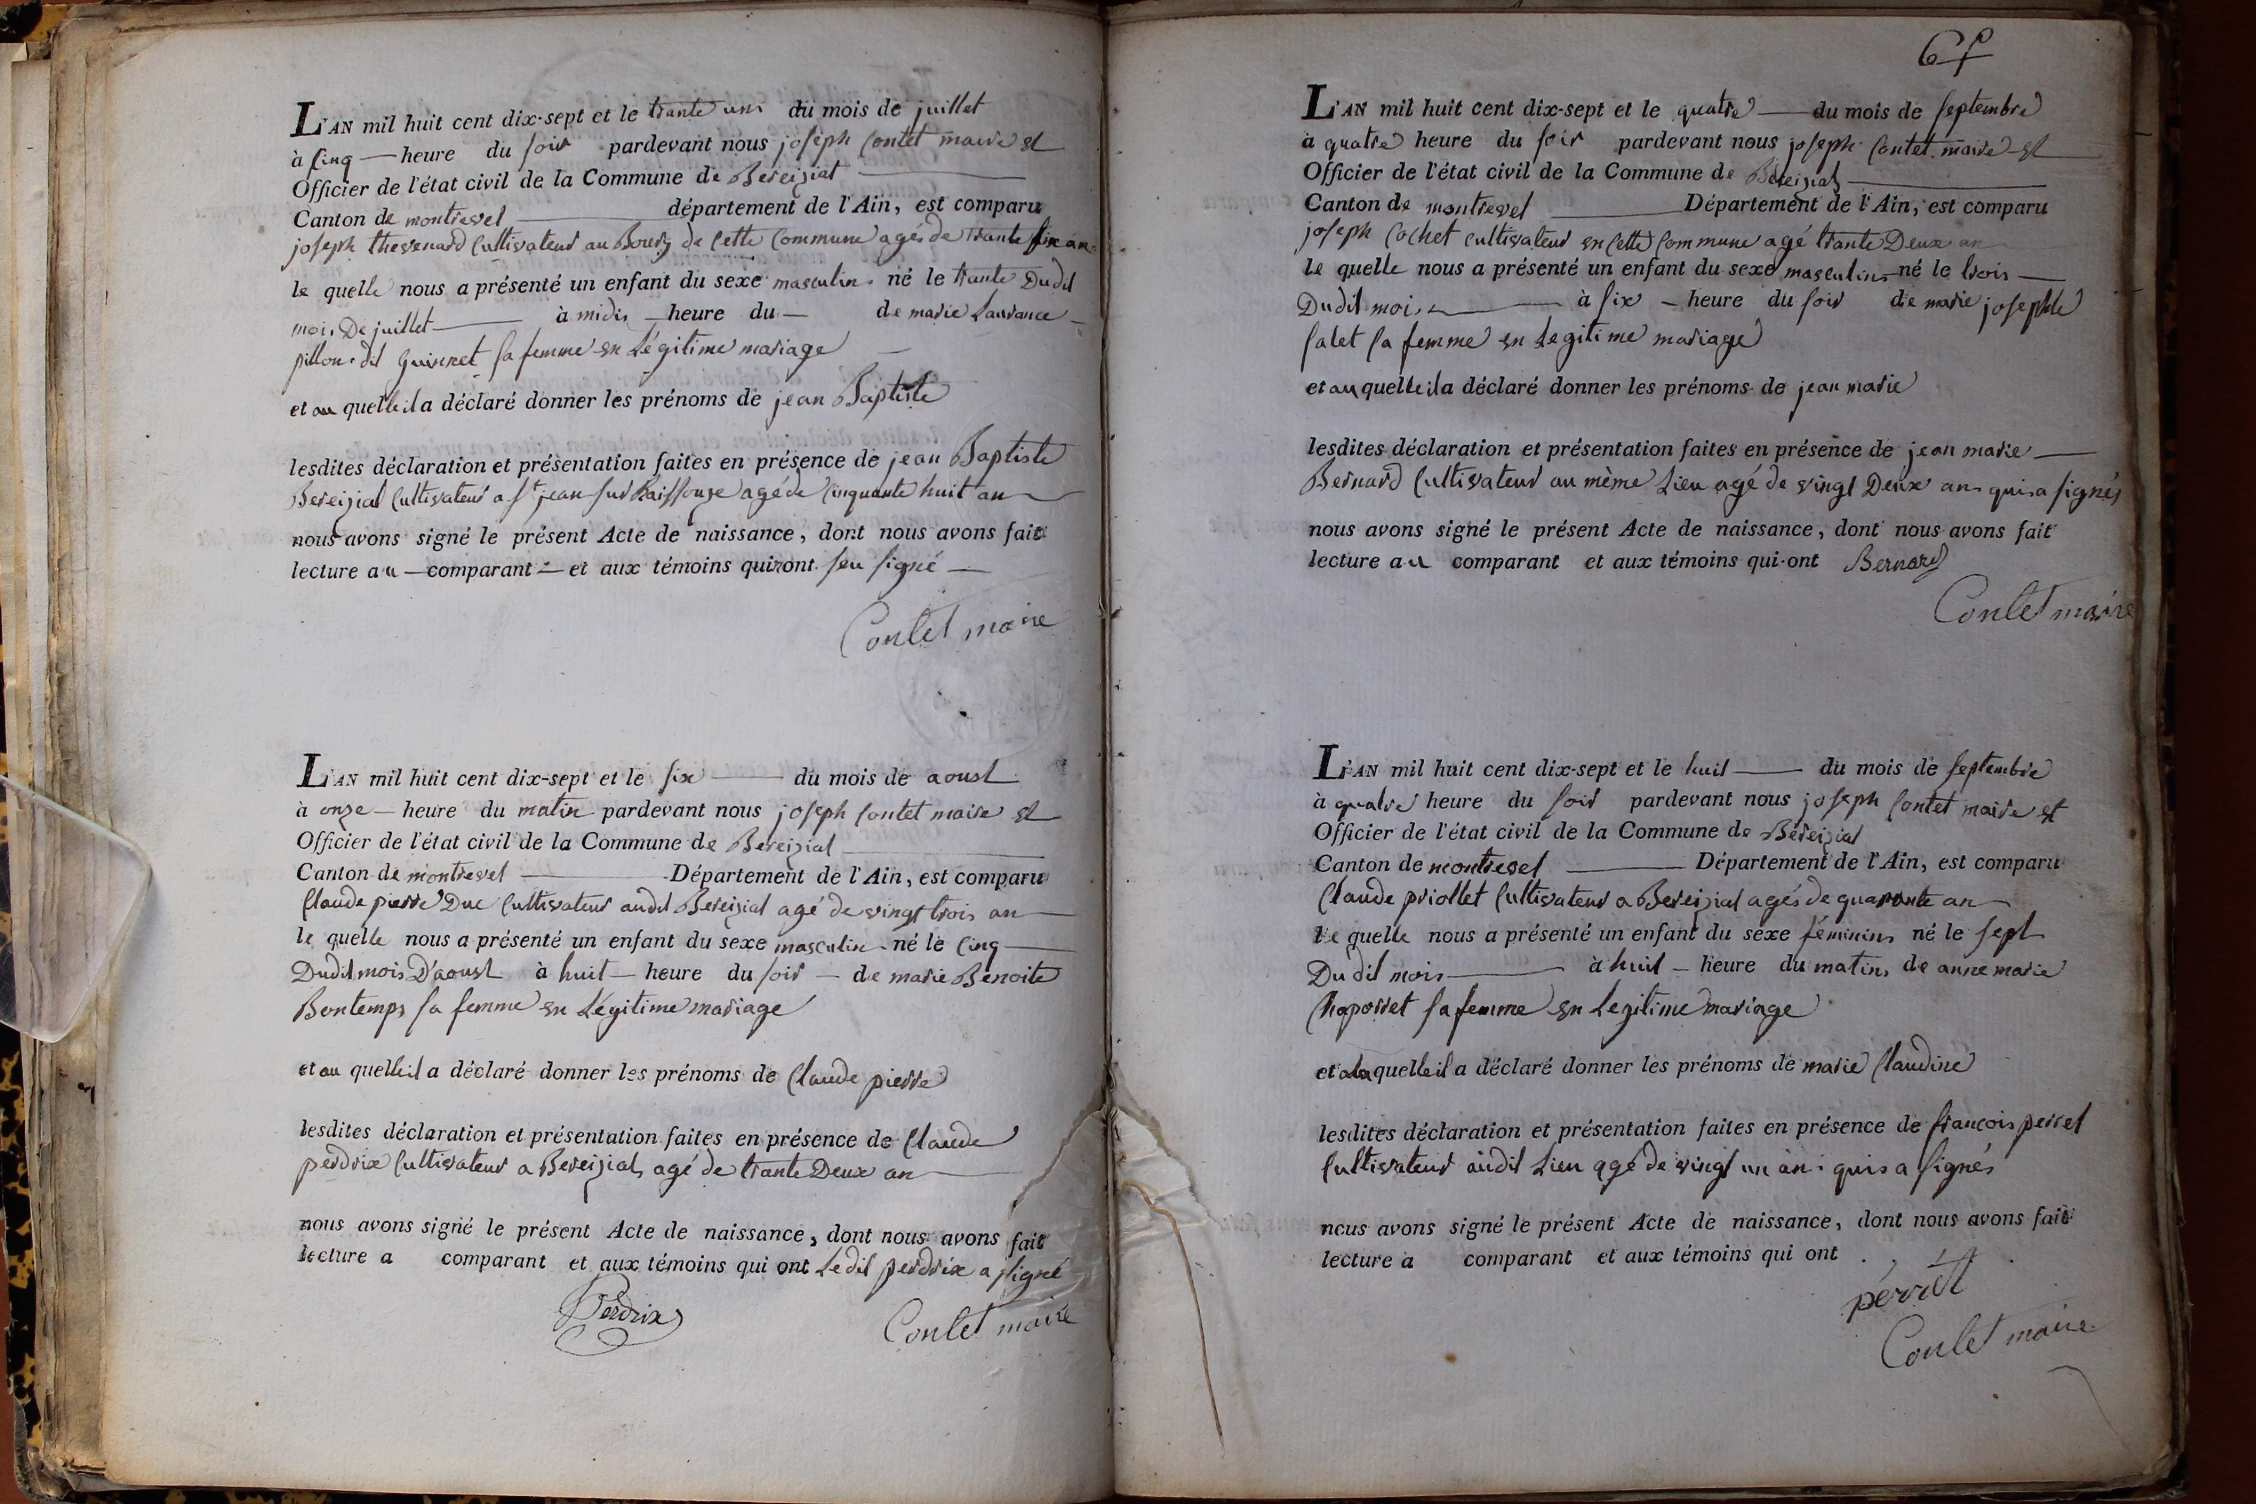 L'AN mil huit cent dix-sept et le trante un du mois de juillet
à cinq heure du soir pardevant nous joseph Contet maire et
Officier de l'état civil de la Commune de Bereiziat
Canton de montrevel département de l'Ain, est comparu
joseph thevenard Cultivateur au Bourg de Cette Commune agés de trante six an
le quelle nous a présenté un enfant du sexe masculin né le trante Dudit
mois De juillet à midis heure du de marie Laurance
pillon dit Guinnet sa femme en Légitime mariage
et au quelle il a déclaré donner les prénoms de jean Baptiste
lesdites déclaration et présentation faites en présence de jean Baptiste
Bereizial Cultivateur a St jean sur Raissouze agé de Cinquante huit an
nous avons signé le présent Acte de naissance, dont nous avons fait
lecture au comparant et aux témoins qui ront seu signé
Contet maire
L'AN mil huit cent dix-sept et le six du mois de aoust
à onze heure du matin pardevant nous joseph Contet maire et
Officier de l'état civil de la Commune de Bereizial
Canton de montrevel Département de l'Ain, est comparu
Claude pierre Duc Cultivateur audit Bereizial agé de vingt trois an
le quelle nous a présenté un enfant du sexe masculin né le Cinq
Dudit mois D'aoust à huit heure du soir de marie Benoite
Bontemps sa femme en Légitime mariage
et au quelle il a déclaré donner les prénoms de Claude pierre
lesdites déclaration et présentation faites en présence de Claude
perdrix Cultivateur a Bereizial agé de trante Deux an
nous avons signé le présent Acte de naissance, dont nous avons fait
lecture a comparant et aux témoins qui ont Ledit perdrix a signé
Perdrix
Contet maire
L'AN mil huit cent dix-sept et le quatre du mois de septembre
à quatre heure du soir pardevant nous joseph Contet maire et
Officier de l'état civil de la Commune de Béreizial
Canton de montrevel Département de l'Ain, est comparu
joseph Cochet Cultivateur en Cette Commune agé trante Deux an
le quelle nous a présenté un enfant du sexe masculin né le trois
Dudit mois à six heure du soir de marie josephte
salet sa femme en Legitime mariage
et au quelle il a déclaré donner les prénoms de jean marie
lesdites déclaration et présentation faites en présence de jean marie
Bernard Cultivateur au mème Lieu agé de vingt Deux an quis a signés
nous avons signé le présent Acte de naissance, dont nous avons fait
lecture au comparant et aux témoins qui ont Bernard
Contet maire
L'AN mil huit cent dix-sept et le huit du mois de septembre
à quatre heure du soir pardevant nous joseph Contet maire et
Officier de l'état civil de la Commune de Béreizial
Canton de montrevel Département de l'Ain, est comparu
Claude priollet Cultivateur a Bereizial agés de quarante an
le quelle nous a présenté un enfant du sexe féminins né le sept
Dudit mois à huit heure du matins de anne marie
Chaposset sa femme en Legitime mariage
et a la quelle il a déclaré donner les prénoms de marie Claudine
lesdites déclaration et présentation faites en présence de françois perret
Cultivateur audit Lieu agé de vingt un an quis a signés
nous avons signé le présent Acte de naissance, dont nous avons fait
lecture a comparant et aux témoins qui ont
pérrét
Contet maire